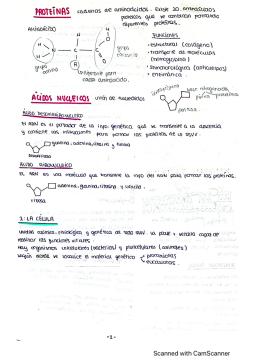 PROTEÍNAS cadenas de aminoácidos. Existe 20 aminoácidos
proteicos que se combinan formando
diferentes proteínas.
AMINOÁCIDO
FUNCIONES
- estructural (colágeno)
- transporte de moléculas
(hemoglobina)
- inmunológica (anticuerpos)
- enzimática
H
H
O
N
C
C
H
O
H
grupo
amino
R
grupo
diferente para
cada aminoácido.
ÁCIDOS NUCLEICOS unión de nucleótidos
ÁCIDO DESOXIRRIBONUCLEICO
El ADN es el portador de la info. genética, que se transmite a la
y contiene las instrucciones para formar las proteínas de
guanina, adenina, citosina y timina
ÁCIDO RIBONUCLEICO
El ARN es una molécula que transmite la info del ADN para formar las proteínas.
adenina, guanina, citosina y uracilo.
ribosa
2. LA CÉLULA
Unidad anatómica, fisiológica y genética de todo ser vivo capaz de
realizar las funciones vitales.
Hay organismos unicelulares (bacterias) y pluricelulares (animales)
según donde se localice el material genético
procariotas
eucariotas.
-1-
Scanned with CamScanner